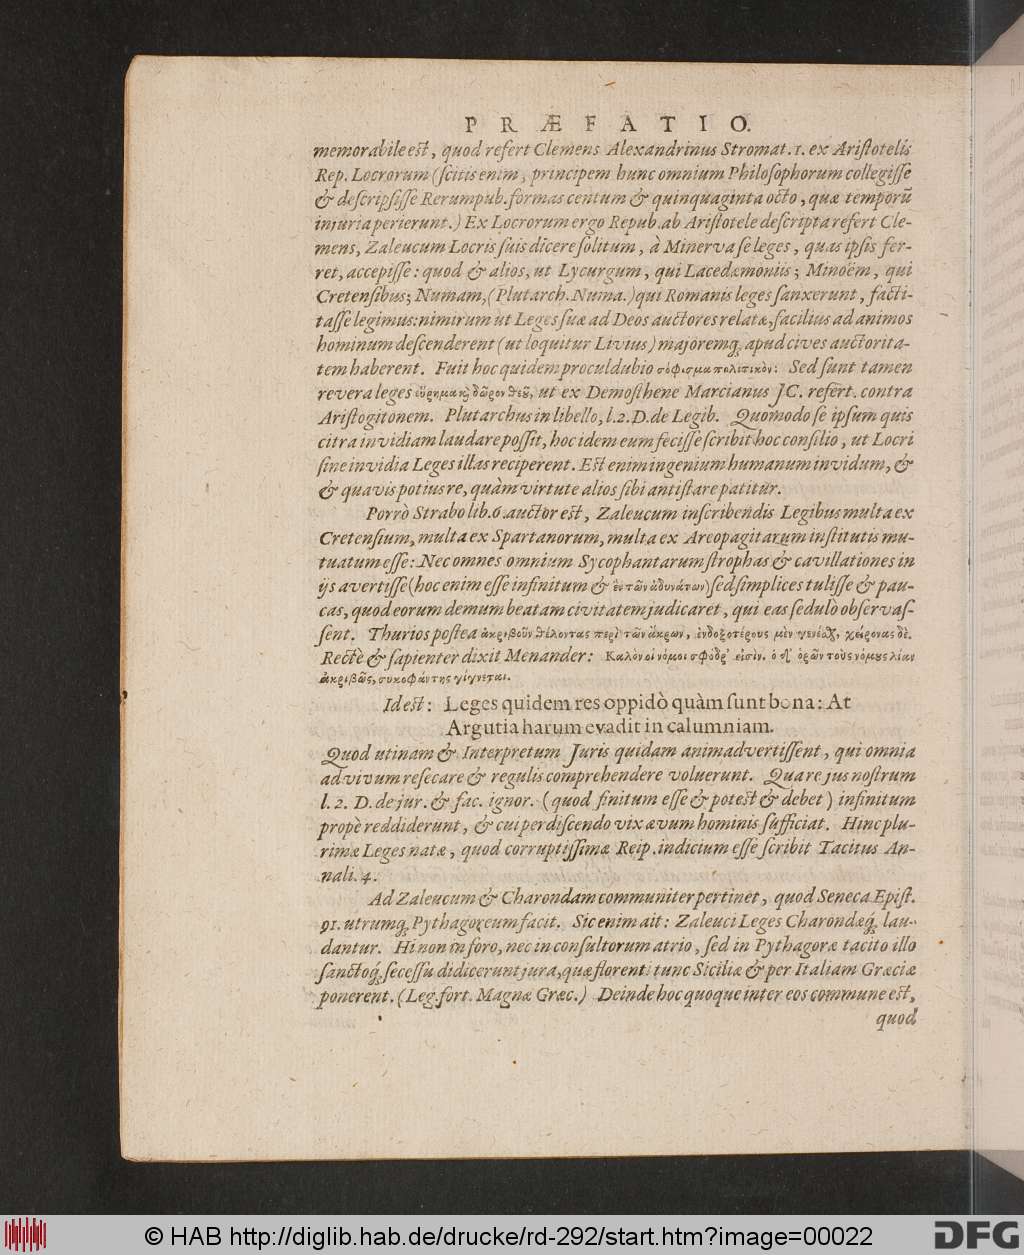 PRÆFATIO.
memorabile est, quod refert Clemens Alexandrinus Stromat. 1. ex Aristotelis
Rep. Locrorum (scitis enim, principem hunc omnium Philosophorum collegisse
& descripsisse Rerumpub. formas centum & quinquaginta octo, quæ temporũ
injuria perierunt.) Ex Locrorum ergo Repub. ab Aristotele descripta refert Cle-
mens, Zaleucum Locris suis dicere solitum, à Minerva se leges, quas ipsis fer-
ret, accepisse: quod & alios, ut Lycurgum, qui Lacedæmoniis; Minoëm, qui
Cretensibus; Numam, (Plutarch. Numa.) qui Romanis leges sanxerunt, facti-
tasse legimus: nimirum ut Leges suæ ad Deos auctores relatæ, facilius ad animos
hominum descenderent (ut loquitur Livius) majoremq; apud cives auctorita-
tem haberent. Fuit hoc quidem proculdubio σόφισμα πολιτικὸν: Sed sunt tamen
revera leges εὕρημα καὶ δῶρον θεοῦ, ut ex Demosthene Marcianus JC. refert. contra
Aristogitonem. Plutarchus in libello, l. 2. D. de Legib. Quomodo se ipsum quis
citra invidiam laudare possit, hoc idem eum fecisse scribit hoc consilio, ut Locri
sine invidia Leges illas reciperent. Est enim ingenium humanum invidum, &
& quavis potius re, quàm virtute alios sibi antistare patitur.
Porrò Strabo lib. 6. auctor est, Zaleucum inscribendis Legibus multa ex
Cretensium, multa ex Spartanorum, multa ex Areopagitarum institutis mu-
tuatum esse: Nec omnes omnium Sycophantarum strophas & cavillationes in
ijs avertisse (hoc enim esse infinitum & ἐκ τῶν ἀδυνάτων) sed simplices tulisse & pau-
cas, quod eorum demum beatam civitatem judicaret, qui eas sedulò observas-
sent. Thurios postea ἀκριβοῦν θέλοντας περὶ τῶν ἄκρων, ἐνδοξοτέρους μὲν γενέσθαι, χείρονας δὲ.
Rectè & sapienter dixit Menander: Καλὸν οἱ νόμοι σφόδρ᾽ εἰσὶν. ὁ δ᾽ ὁρῶν τοὺς νόμους λίαν
ἀκριβῶς, συκοφάντης γίγνεται.
Id est: Leges quidem res oppidò quàm sunt bona: At
Argutia harum evadit in calumniam.
Quod utinam & Interpretum Juris quidam animadvertissent, qui omnia
ad vivum resecare & regulis comprehendere voluerunt. Quare jus nostrum
l. 2. D. de jur. & fac. ignor. (quod finitum esse & potest & debet) infinitum
propè reddiderunt, & cui perdiscendo vix ævum hominis sufficiat. Hinc plu-
rimæ Leges natæ, quod corruptissimæ Reip. indicium esse scribit Tacitus An-
nali. 4.
Ad Zaleucum & Charondam communiter pertinet, quod Seneca Epist.
91. utrumq; Pythagoreum facit. Sic enim ait: Zaleuci Leges Charondæq́; lau-
dantur. Hi non in foro, nec in consultorum atrio, sed in Pythagoræ tacito illo
sanctoq́; secessu didicerunt jura, quæ florenti tunc Siciliæ & per Italiam Græciæ
ponerent. (Leg. fort. Magnæ Græc.) Deinde hoc quoque inter eos commune est,
quod
© HAB http://diglib.hab.de/drucke/rd-292/start.htm?image=00022
DFG